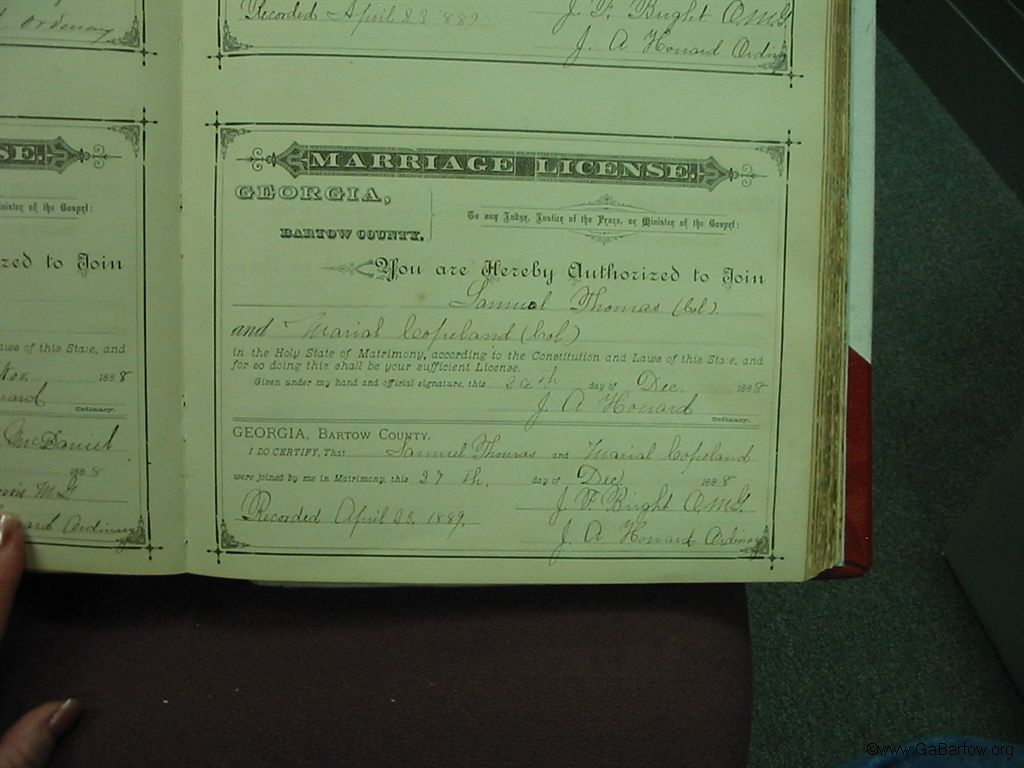 Ordinary
Recorded April 23 1889
J. F. Bright O.M.G.
J. A Howard Ordinary
SE.
Minister of the Gospel:
zed to Join
aws of this State, and
Nov. 1888
ward
Ordinary.
McDaniel
1888
M G
ward Ordinary
MARRIAGE LICENSE.
GEORGIA,
BARTOW COUNTY.
To any Judge, Justice of the Peace, or Minister of the Gospel:
You are Hereby Authorized to Join
Samuel Thomas (Col).
and Mariah Copeland (Col)
in the Holy State of Matrimony, according to the Constitution and Laws of this State, and
for so doing this shall be your sufficient License.
Given under my hand and official signature, this 26th day of Dec. 1888
J. A Howard
Ordinary.
GEORGIA, BARTOW COUNTY.
I DO CERTIFY, That Samuel Thomas and Mariah Copeland
were joined by me in Matrimony, this 27 Th. day of Dec 1888
J. F. Bright O.M.G.
Recorded April 23, 1889.
J. A. Howard Ordinary
©www.GaBartow.org